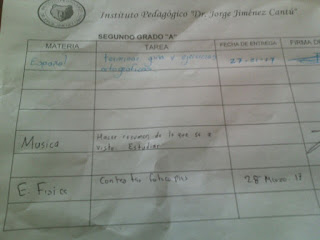 Instituto Pedagógico "Dr. Jorge Jiménez Cantú"
SEGUNDO GRADO "A"
MATERIA TAREA FECHA DE ENTREGA FIRMA DE
Español Terminar guia y ejercicios
ortograficos 27-01-09
Musica Hacer resumen de lo que se a
visto. Estudiar
E. Fisica 28 Marzo